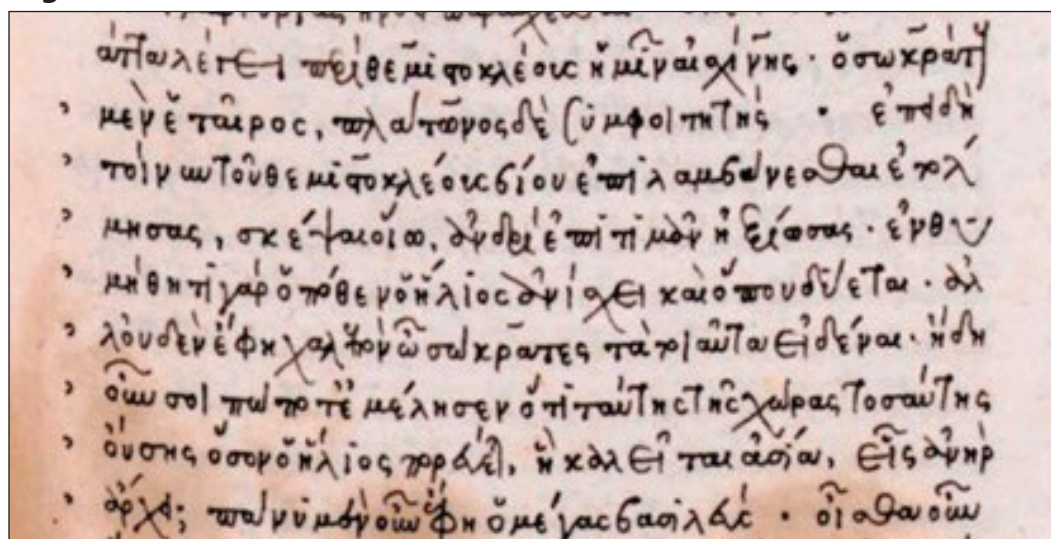 ἅττα λέγει περὶ θεμιστοκλέους ἡμῖν αἰσχίνης · ὁ σωκράτους
μὲν ἑταῖρος, πλάτωνος δὲ συμφοιτητής · ἐπειδὴ
τοίνυν τοῦ θεμιστοκλέους βίου ἐπιλαμβάνεσθαι ἐτόλ
μησας, σκέψαι οἵω, ἀνδρὶ ἐπιτιμᾶν ἠξίωσας · ἐνθυ
μήθητι γὰρ ὁπόθεν ὁ ἥλιος ἀνίσχει καὶ ὅπου δύεται · ἀλ
λ' οὐδὲν ἔφη χαλεπὸν ὦ σώκρατες τὰ τοιαῦτα εἰδέναι · ἤδη
οὖν σοι πώποτε μέλησεν ὅτι ταύτης τῆς χώρας τοσαύτης
οὔσης ὅσον ὁ ἥλιος πορεύει, ἣ καλεῖται ἀσία, εἷς ἀνὴρ
ἄρχει; πάνυ μὲν οὖν ἔφη ὁ μέγας βασιλεύς · οἶσθα οὖν